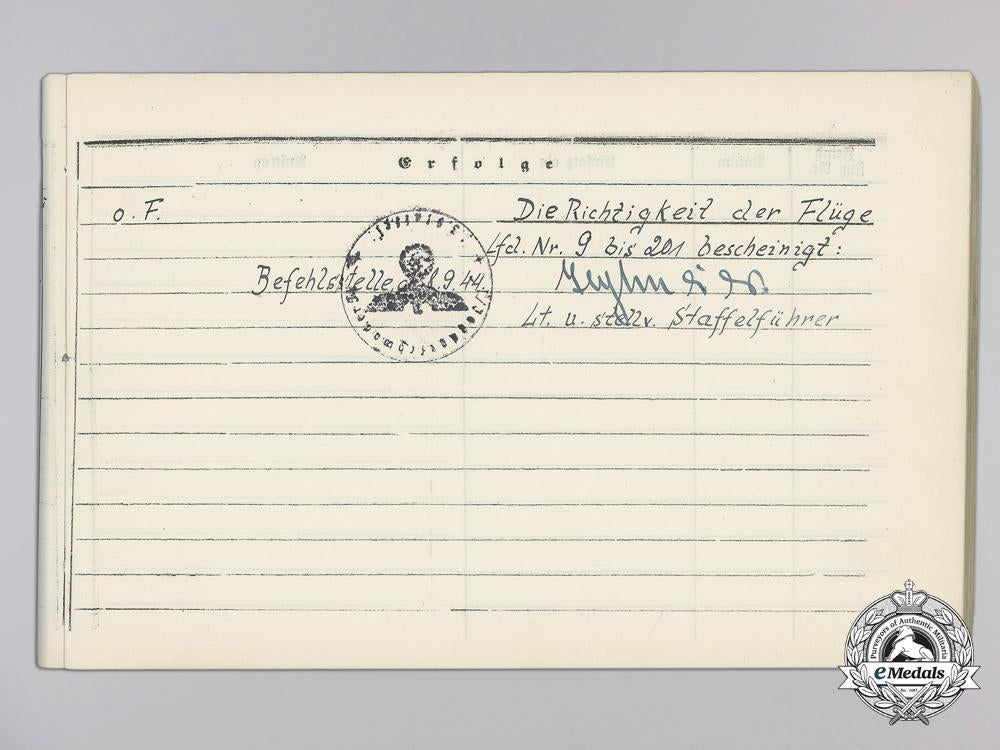 Erfolge
o. F.
Die Richtigkeit der Flüge
Lfd. Nr. 9 bis 201 bescheinigt:
Befehlsstelle, d. 1.9.44.
Lt. u. stellv. Staffelführer
Purveyors of Authentic Militaria
eMedals